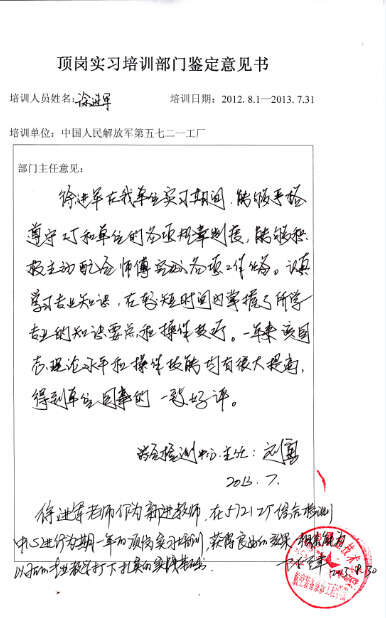 顶岗实习培训部门鉴定意见书
培训人员姓名:徐进军 培训日期:2012.8.1—2013.7.31
培训单位:中国人民解放军第五七二一工厂
部门主任意见:
徐进军在我单位实习期间,能够严格
遵守工厂和单位的各项规章制度,能够积
极主动配合师傅完成各项工作任务。认真
学习专业知识,在较短时间内掌握了所学
专业的知识要点和操作技巧。一年来该同
志理论水平和操作技能均有很大提高,
得到单位同事的一致好评。
综合检测中心主任:刘
2013.7.
徐进军老师作为新进教师,在5721工厂综合检测
中心进行为期一年的顶岗实习培训,获得良好的效果,
以后的专业教学打下扎实的实践基础。